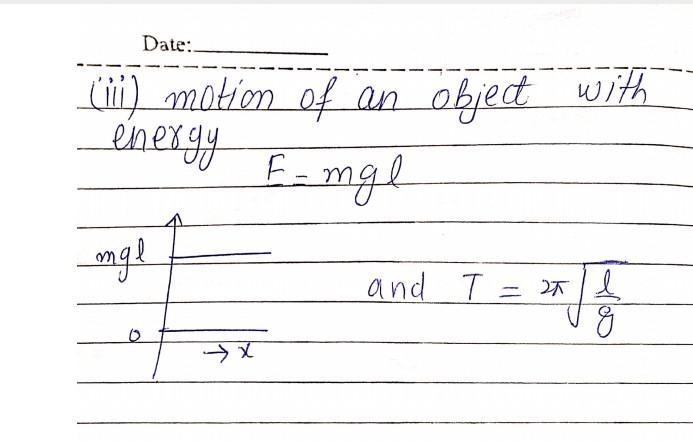 Date:
(iii) motion of an object with
energy
E = mgl
mgl
and T = 2π√l/g
0
→ x